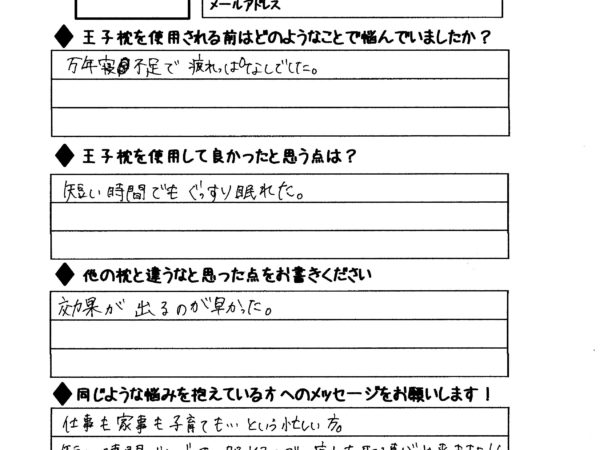 メールアドレス
◆ 王子枕を使用される前はどのようなことで悩んでいましたか？
万年寝不足で 疲れっぱなしでした。
◆ 王子枕を使用して良かったと思う点は？
短い時間でも ぐっすり眠れた。
◆ 他の枕と違うなと思った点をお書きください
効果が 出るのが早かった。
◆ 同じような悩みを抱えている方へのメッセージをお願いします！
仕事も家事も子育ても…という忙しい方。